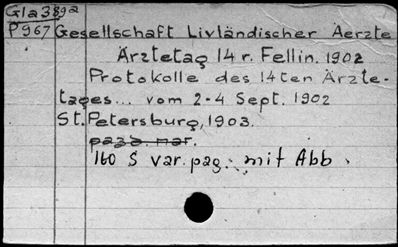 Gla389a
P967 Gesellschaft Livländischer Aerzte
Ärztetag 14 r. Fellin. 1902
Protokolle des 14ten Ärzte-
tages... vom 2-4 Sept. 1902
St. Petersburg, 1903.
pagd. nar.
160 S var. pag. mit Abb.